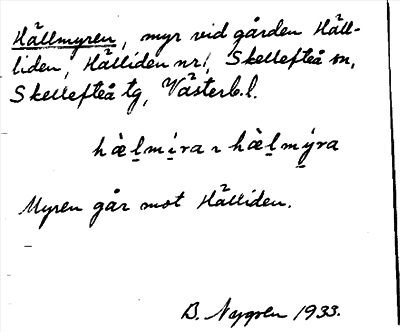 Hällmyren, myr vid gården Häll-
liden, Hälliden nr 1, Skellefteå sn,
Skellefteå tg, Västerb.l.
hὲl̲mi̲ra ɿ hὲl̲mý̲ra
Myren går mot Hälliden.
B. Nygren 1933.